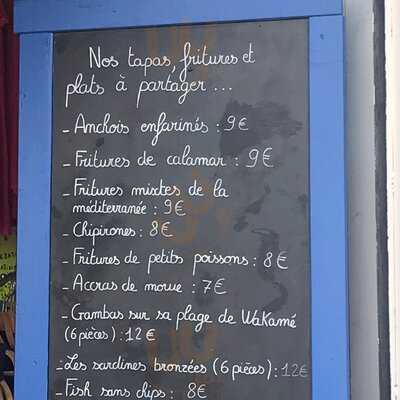 Nos tapas, fritures et
plats à partager ...
- Anchois enfarinés : 9€
- Fritures de calamar : 9€
- Fritures mixtes de la
méditerranée : 9€
- Chipirones : 8€
- Fritures de petits poissons : 8€
- Accras de morue : 7€
- Gambas sur sa plage de Wakamé
(6 pièces) : 12€
- Les sardines bronzées (6 pièces) : 12€
- Fish sans chips : 8€